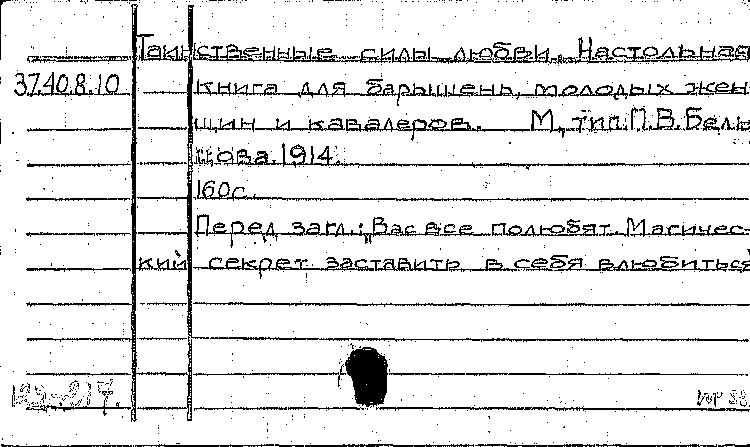 Таинственные силы любви. Настольная
37.40.8.10 книга для барышень, молодых жен-
щин и кавалеров. М, тип. П.В. Бель-
цова. 1914.
160с.
Перед загл.: „Вас все полюбят. Магичес-
кий секрет заставить в себя влюбиться